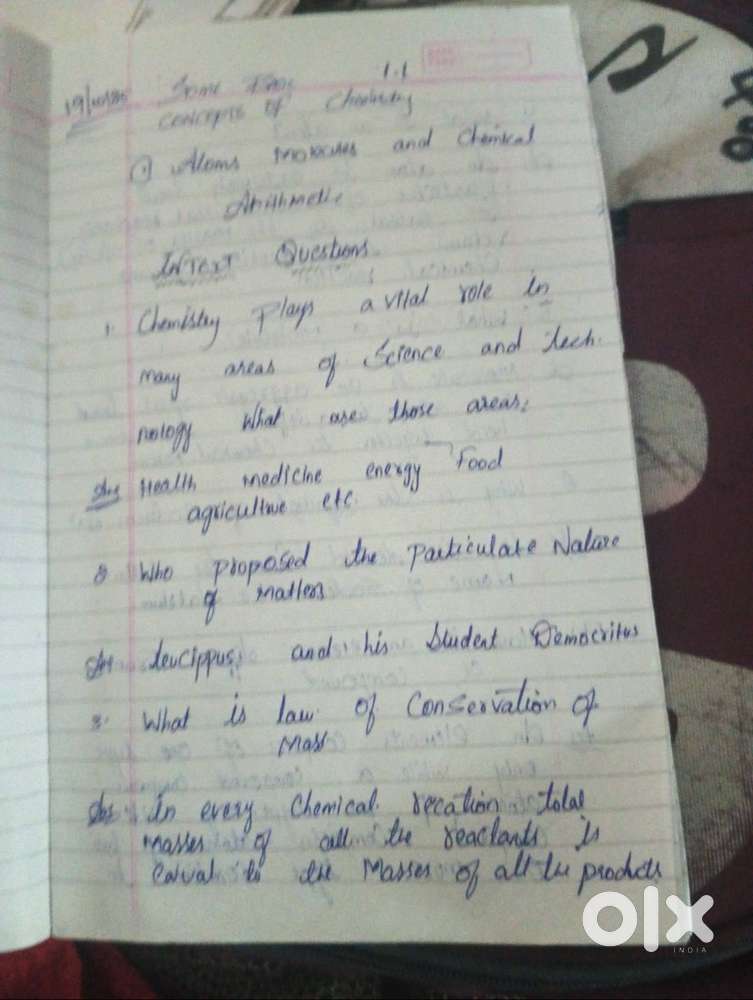 1.1
Some Basic
Concepts of Chemistry
1) Atoms Molecules and Chemical
Arithmetic
Intext Questions.
1. Chemistry Plays a vital role in
many areas of Science and tech.
nology What are those areas;
Ans Health medicine energy Food
agriculture etc.
2 Who proposed the Particulate Nature
of matters
Ans Leucippus, and his Student Democritus
3. What is law of Conservation of
Mass
Ans In every Chemical recation total
masses of all the reactants is
Eaual to the Masses of all the products
olx
INDIA